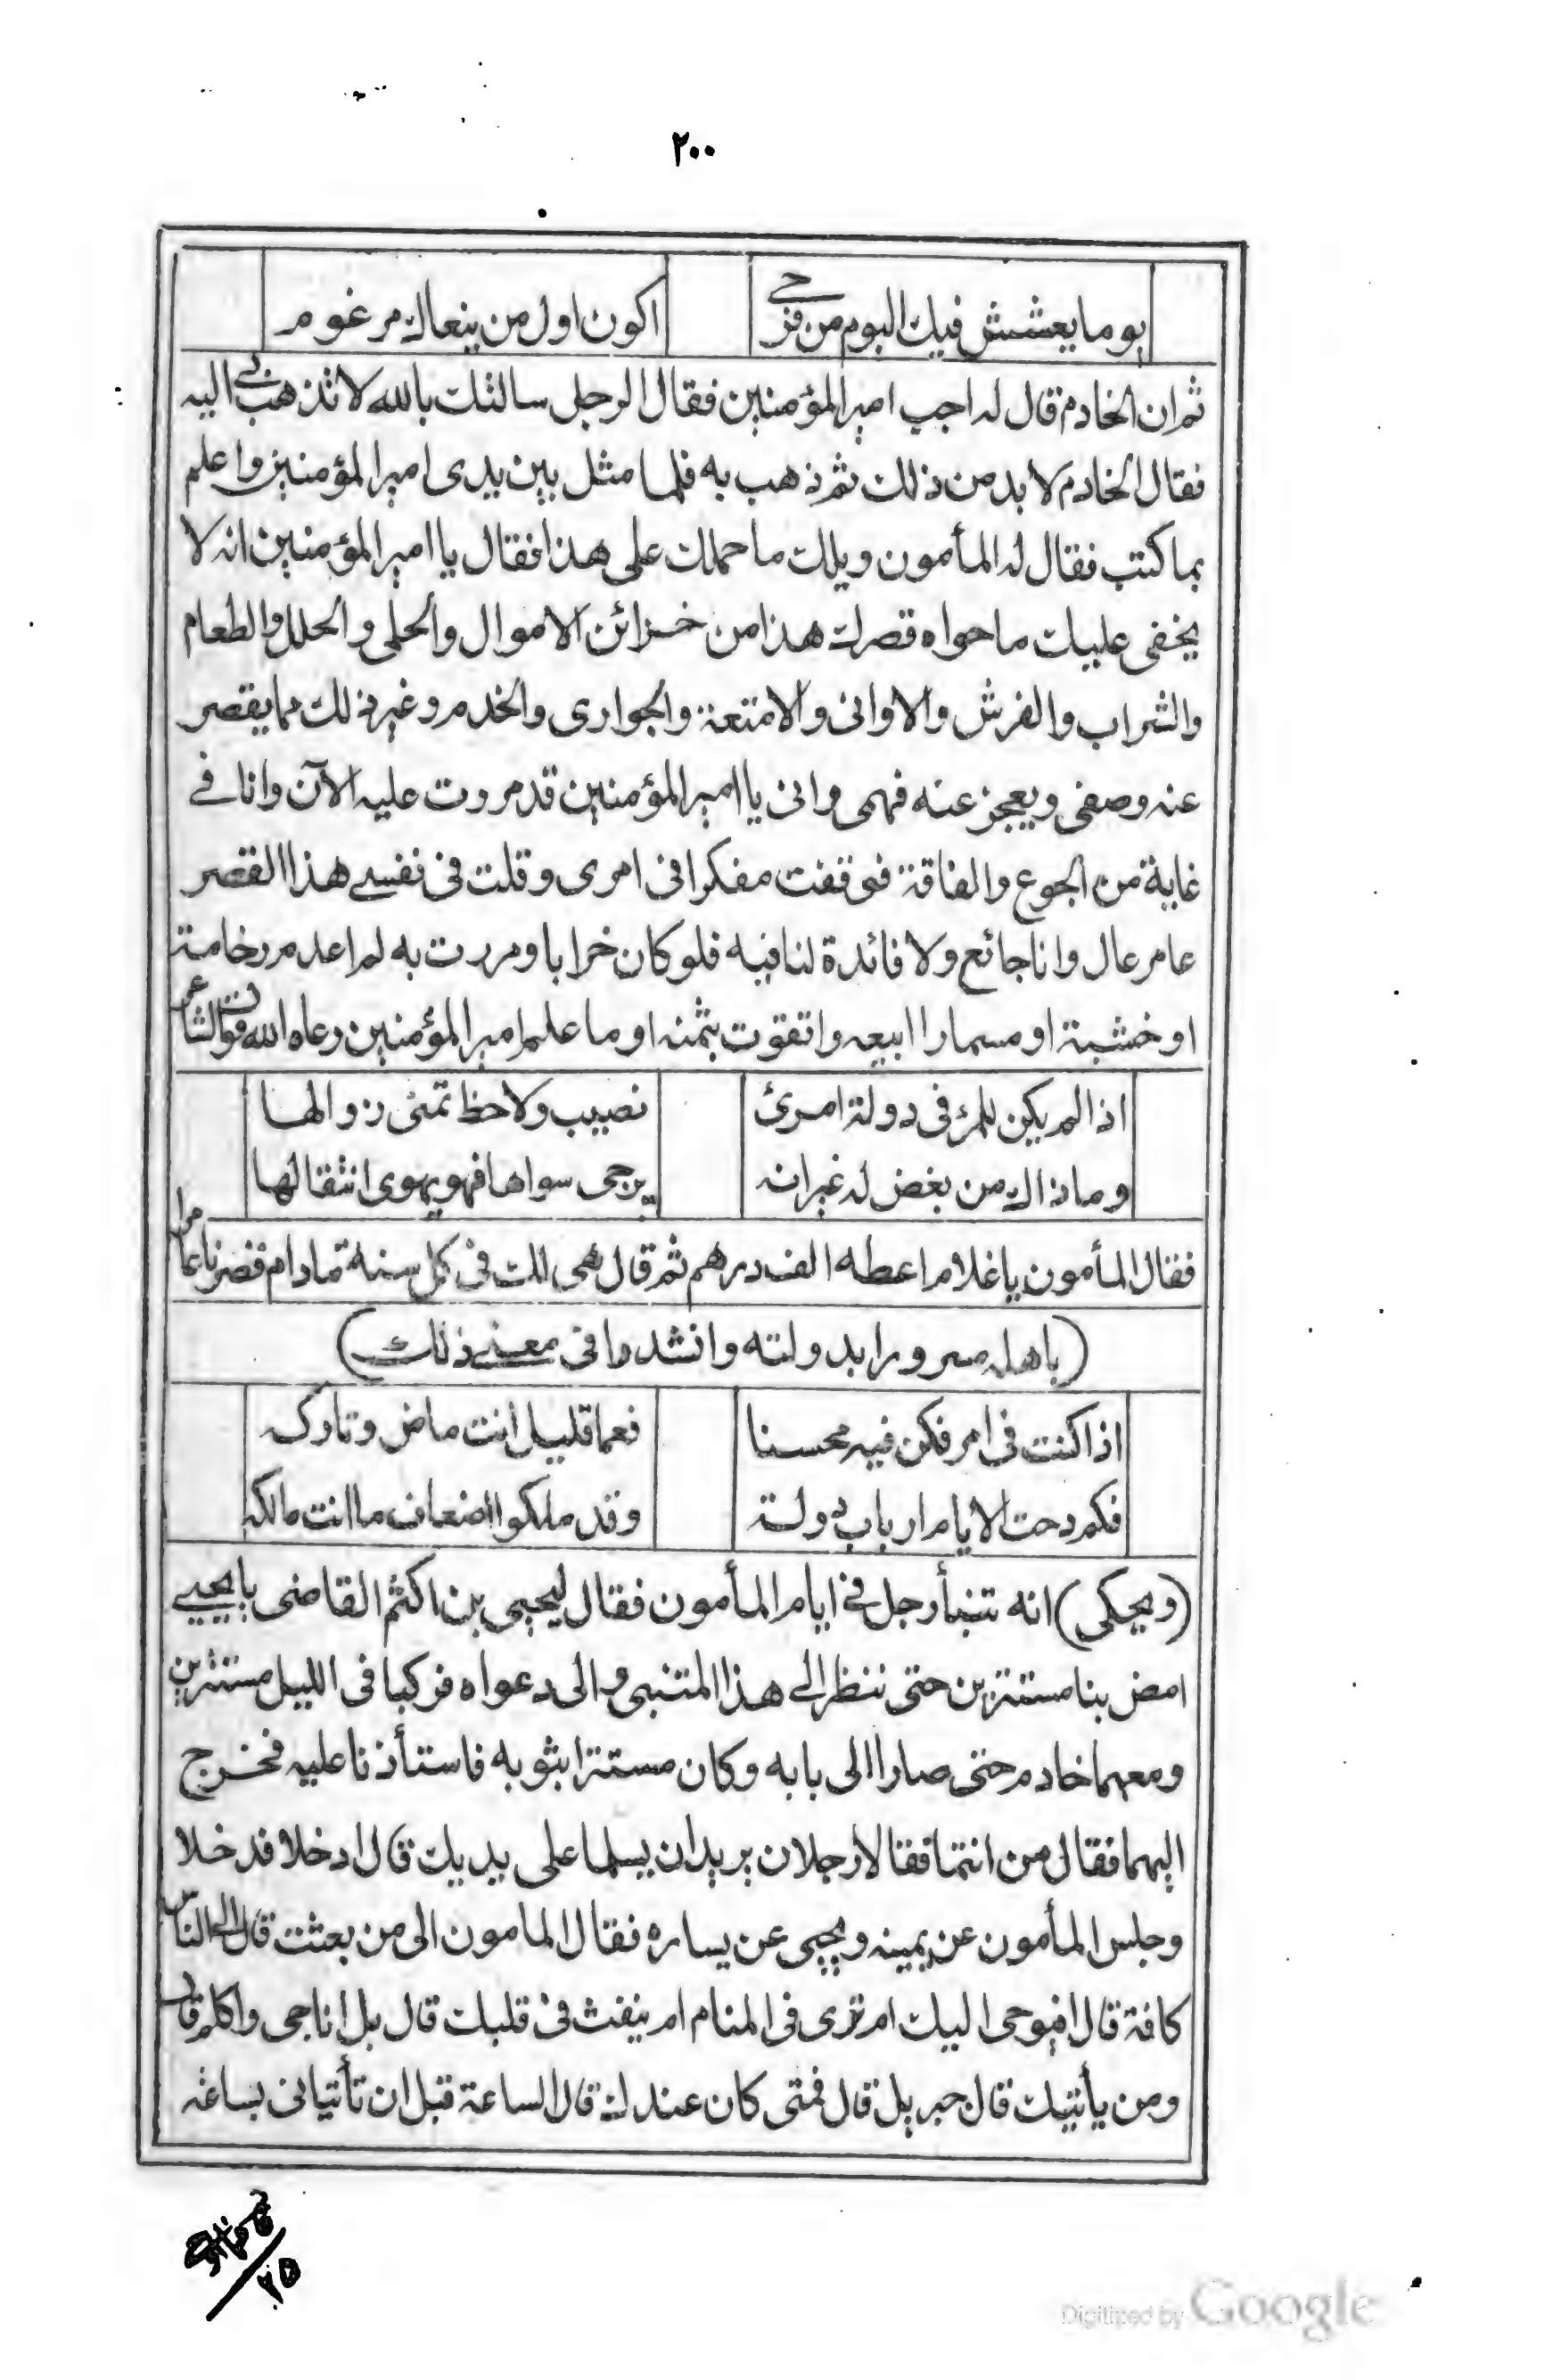 ٢٠٠
يوما يعشش فيك البوم من فرحي اكون اول من ينعاك مرغوم
ثم ان الخادم قال له اجب امير المؤمنين فقال الرجل سالتك بالله لا تذهب بي اليه
فقال الخادم لا بد من ذلك ثم ذهب به فلما مثل بين يدى امير المؤمنين واعلم
بما كتب فقال له المأمون ويلك ما حملك على هذا فقال يا امير المؤمنين انه لا
يخفى عليك ما حواه قصرك هذا من خزائن الاموال والحلى والحلل والطعام
والشراب والفرش والاوانى والامتعة والجوارى والخدم وغير ذلك مما يقصر
عنه وصفى ويعجز عنه فهمى وانى يا امير المؤمنين قد مررت عليه الآن وانا في
غاية من الجوع والفاقة فوقفت مفكرا فى امرى وقلت فى نفسي هذا القصر
عامر عال وانا جائع ولا فائدة لنا فيه فلو كان خرابا ومررت به لم اعدم رخامة
او خشبة او مسمارا ابيعه واتقوت بثمنه او ما علم امير المؤمنين رعاه الله قول الشاعر
اذا لم يكن للمرء فى دولة امرئ نصيب ولا حظ تمنى زوالها
وما ذاك من بغض له غير انه يرجى سواها فهو يهوى انتقالها
فقال المأمون يا غلام اعطه الف درهم ثم قال هى لك فى كل سنة ما دام قصرنا عامرا
(باهله مسرورا بدولته وانشدوا فى معنى ذلك)
اذا كنت فى امر فكن فيه محسنا فعما قليل انت ماض وتاركه
فكم دحت الايام ارباب دولة وقد ملكوا اضعاف ما انت مالكه
(ويحكى) انه تنبأ رجل في ايام المأمون فقال ليحيى بن اكثم القاضى يا يحيي
امض بنا مستترين حتى ننظر الى هذا المتنبى والى دعواه فركبا فى الليل مستترين
ومعهما خادم حتى صارا الى بابه وكان مستترا بثوبه فاستأذنا عليه فخرج
اليهما فقال من انتما فقالا رجلان يريدان يسلما على يديك قال ادخلا فدخلا
وجلس المأمون عن يمينه ويحيى عن يساره فقال المامون الى من بعثت قال الى الناس
كافة قال افيوحى اليك ام ترى فى المنام ام ينفث فى قلبك قال بل اناجى واكلم قال
ومن يأتيك قال جبريل قال فمتى كان عندك قال الساعة قبل ان تأتيانى بساعة
٢٥
Digitized by Google